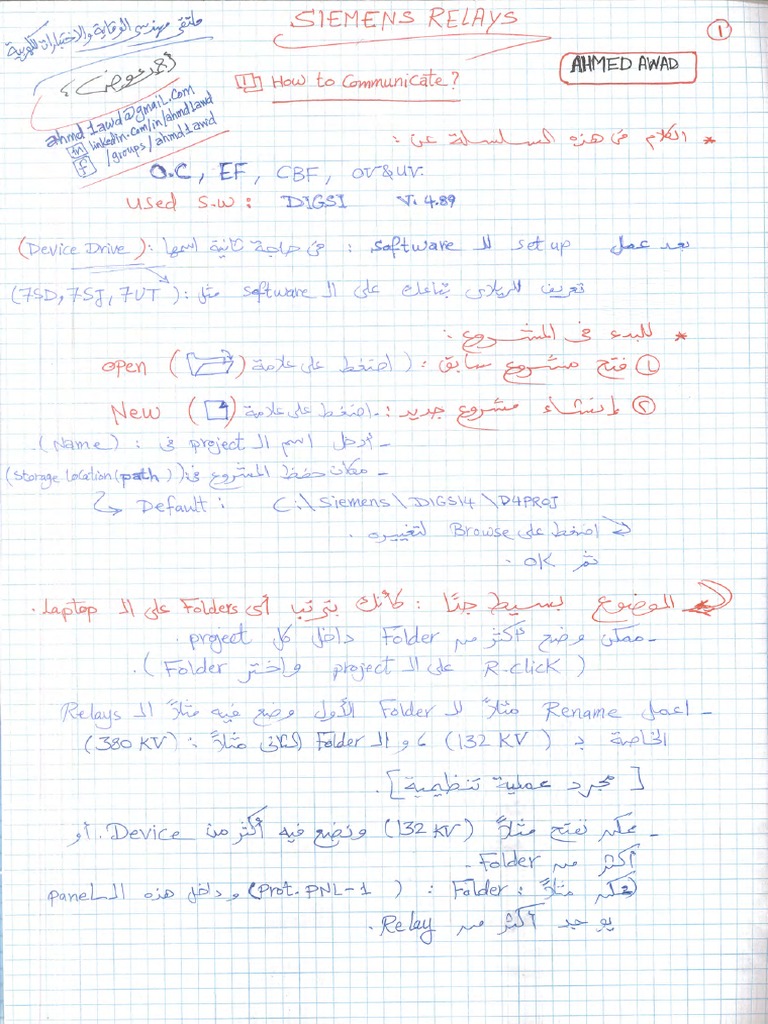 SIEMENS RELAYS
①
ملتقى مهندسى الوقاية والاختبارات الكهربية
AHMED AWAD
1 How to Communicate?
ahmd1awd@gmail.com
in linkedin.com/in/ahmd1awd
f /groups/ahmd1awd
* الكلام فى هذه السلسلة عن :
O.C, EF, CBF, OV&UV.
Used S.W : DIGSI V. 4.89
بعد عمل set up للـ software : فى حاجة ثانية اسمها : (Device Drive)
تعريف الريلاى بتاعك على الـ software مثل : (7SD, 7SJ, 7UT)
* للبدء فى المشروع :
① فتح مشروع سابق : (اضغط على علامة ) open
② إنشاء مشروع جديد : - اضغط على علامة ( ) New
- أدخل اسم الـ project فى : (Name).
- مكان حفظ المشروع فى : (Storage Location (path))
Default : C:\Siemens\DIGSI4\D4PROJ
اضغط على Browse لتغييره .
ثم OK .
الموضوع بسيط جدًا : كأنك بترتب أى Folders على الـ Laptop .
- ممكن وضع أكثر من Folder داخل كل project .
( R-click على الـ project واختر Folder ).
- اعمل Rename مثلاً للـ Folder الأول وضع فيه مثلاً الـ Relays
الخاصة بـ (132 KV) ، والـ Folder الثانى مثلاً : (380 KV)
[ مجرد عملية تنظيمية ].
- ممكن تفتح مثلاً (132 KV) وتضع فيه أكثر من Device . أو
أكثر من Folder .
ممكن مثلاً : Folder : (Prot. PNL-1) وداخل هذه الـ panel
يوجد أكثر من Relay .